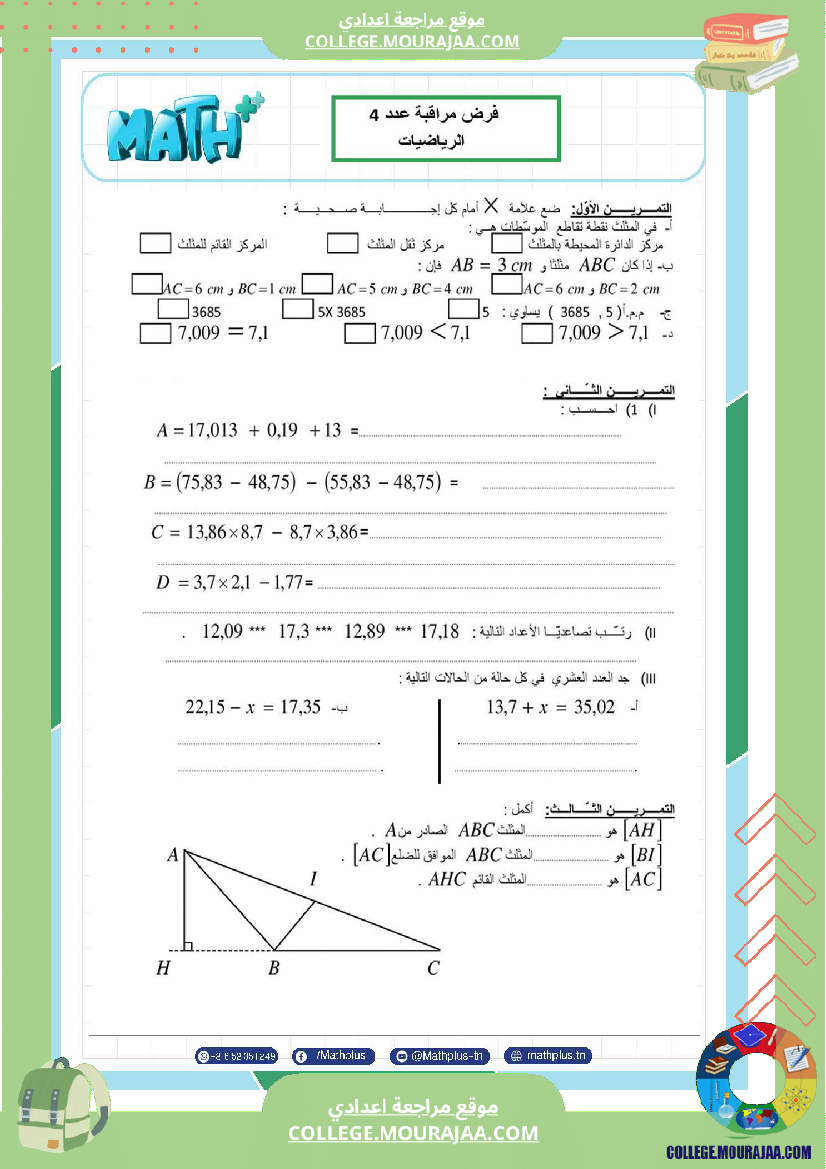 موقع مراجعة اعدادي
COLLEGE.MOURAJAA.COM
MATH
فرض مراقبة عدد 4
الرياضيات
التمـــريـــــن الأوّل: ضع علامة X أمام كل إجـــــــابـــة صـــحـــيـــــة :
أ- في المثلث نقطة تقاطع الموسّطات هـي :
مركز الدائرة المحيطة بالمثلث مركز ثقل المثلث المركز القائم للمثلث
ب- إذا كان ABC مثلثا و AB = 3 cm فإن :
AC = 6 cm و BC = 2 cm AC = 5 cm و BC = 4 cm AC = 6 cm و BC = 1 cm
ج- م.م.أ( 5 , 3685 ) يساوي : 5 5X 3685 3685
د- 7,009 > 7,1 7,009 < 7,1 7,009 = 7,1
التمـــريـــــن الثّـــاني :
I) 1) احـــســـب :
A = 17,013 + 0,19 + 13 =
B = (75,83 − 48,75) − (55,83 − 48,75) =
C = 13,86 × 8,7 − 8,7 × 3,86 =
D = 3,7 × 2,1 − 1,77 =
II) رتـّـــب تصاعديّـــا الأعداد التالية : 17,18 *** 12,89 *** 17,3 *** 12,09 .
III) جد العدد العشري في كل حالة من الحالات التالية :
أ- 13,7 + x = 35,02 ب- 22,15 − x = 17,35
التمـــريـــــن الثّـــالـــث: أكمل :
[AH] هو ............المثلث ABC الصادر من A .
[BI] هو ............المثلث ABC الموافق للضلع [AC] .
[AC] هو ............المثلث القائم AHC .
A
I
H B C
/Mathplus @Mathplus-tn mathplus.tn
موقع مراجعة اعدادي
COLLEGE.MOURAJAA.COM
COLLEGE.MOURAJAA.COM